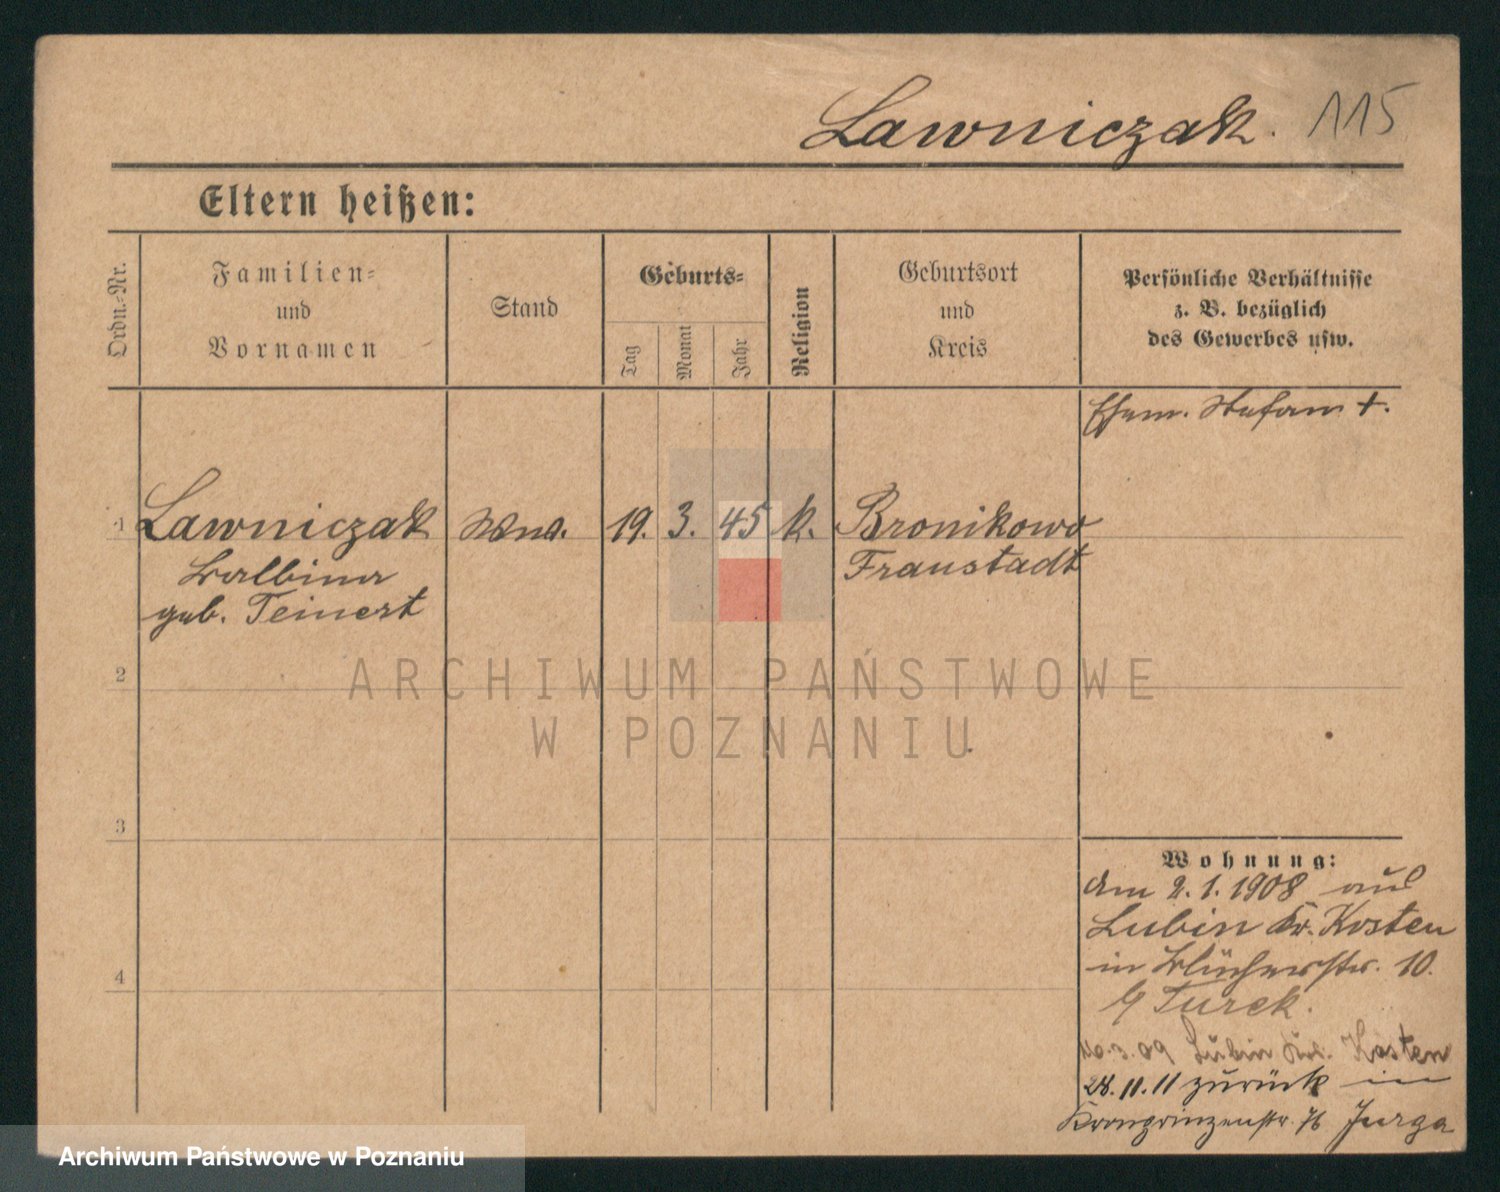 Lawniczak. 115
Eltern heißen:
Ordn.-Nr.
Familien-
und
Vornamen
Stand
Geburts-
Tag
Monat
Jahr
Religion
Geburtsort
und
Kreis
Persönliche Verhältnisse
z. B. bezüglich
des Gewerbes usw.
Ehem. Stefan +.
1 Lawniczak Wwe. 19. 3. 45 k. Bronikowo
Balbina Fraustadt
geb. Teinert
2
3
4
Wohnung:
Am 2. 1. 1908 aus
Lubin Kr. Kosten
in Blücherstr. 10.
b/ Turek.
3. 09 Lubin Kr. Kosten
28. 11. 11 zurück in
Kronprinzenstr. 76 Jurga
ARCHIWUM PAŃSTWOWE
W POZNANIU
Archiwum Państwowe w Poznaniu